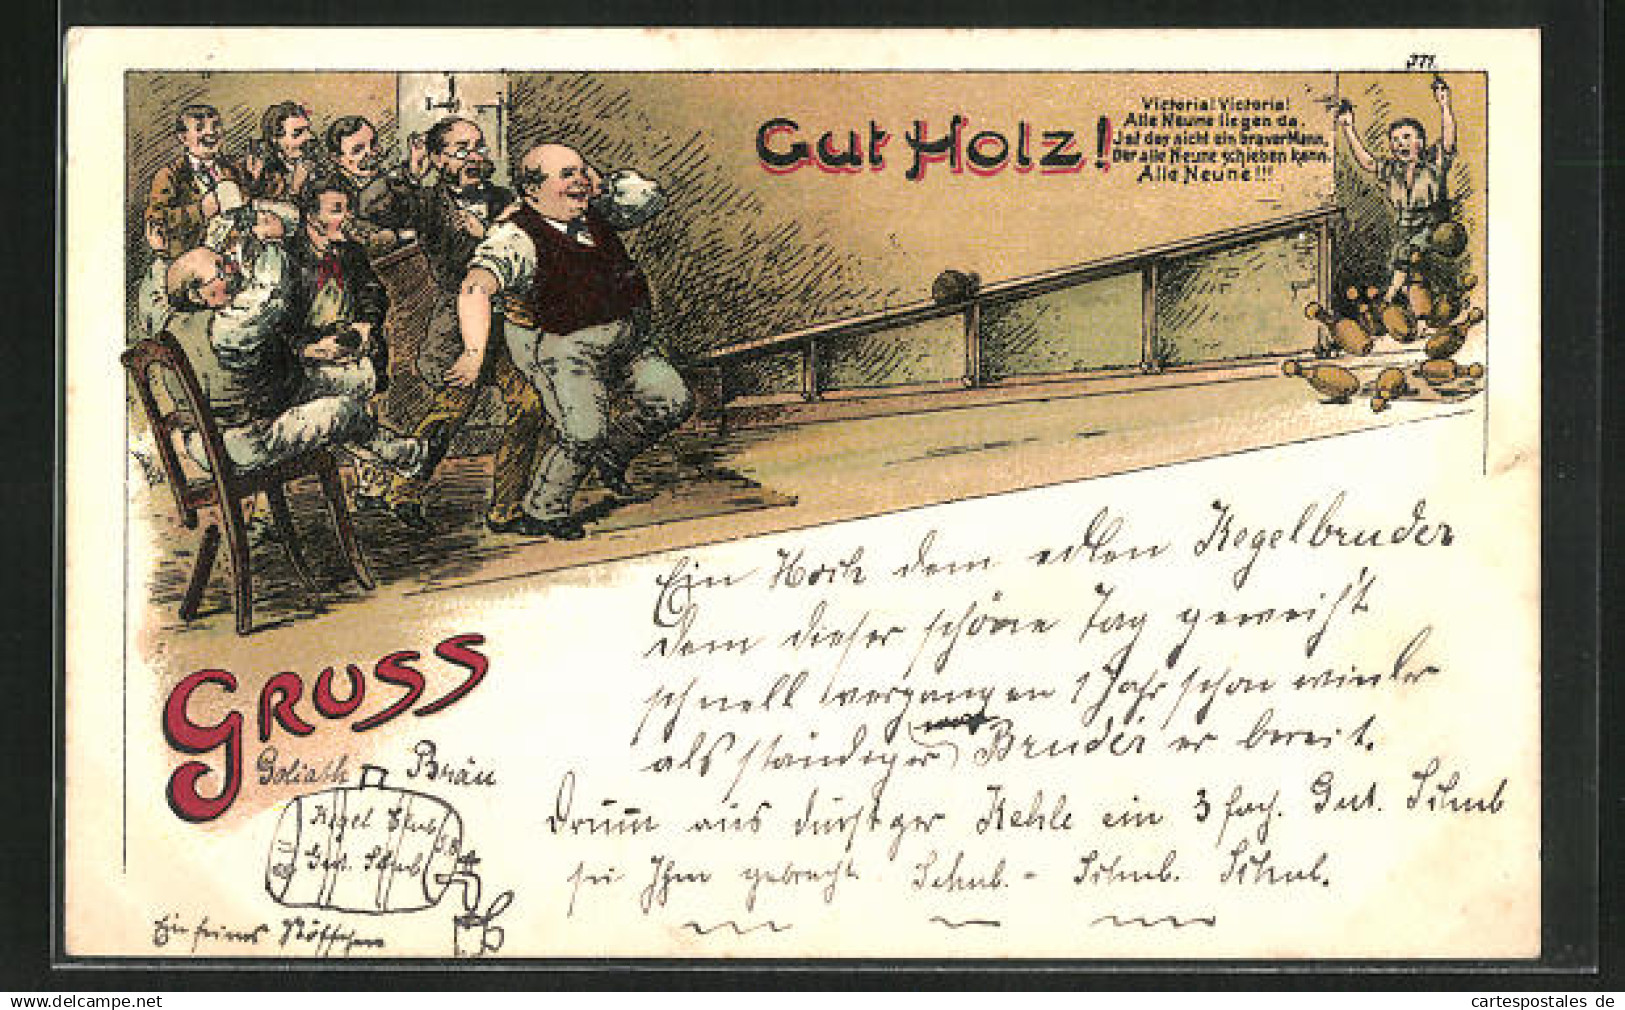 371
Gut Holz!
Victoria! Victoria!
Alle Neune liegen da.
Ist der nicht ein braver Mann,
Der alle Neune schieben kann.
Alle Neune!!!
Gruss
Ein Hoch dem edlen Kegelbruder
dem dieser schöne Tag geweiht
schnell vergangen 1 Jahr schon wieder
als ständiger Bruder er bereit.
Drum aus durstger Kehle ein 3 fach. Gut. Schub
sei Ihm gebracht. Schub. - Schub. Schub.
Goliath Bräu
Kegel Club
Gut. Schub
Ein feines Stöffchen
delcampe.net
cartespostales de